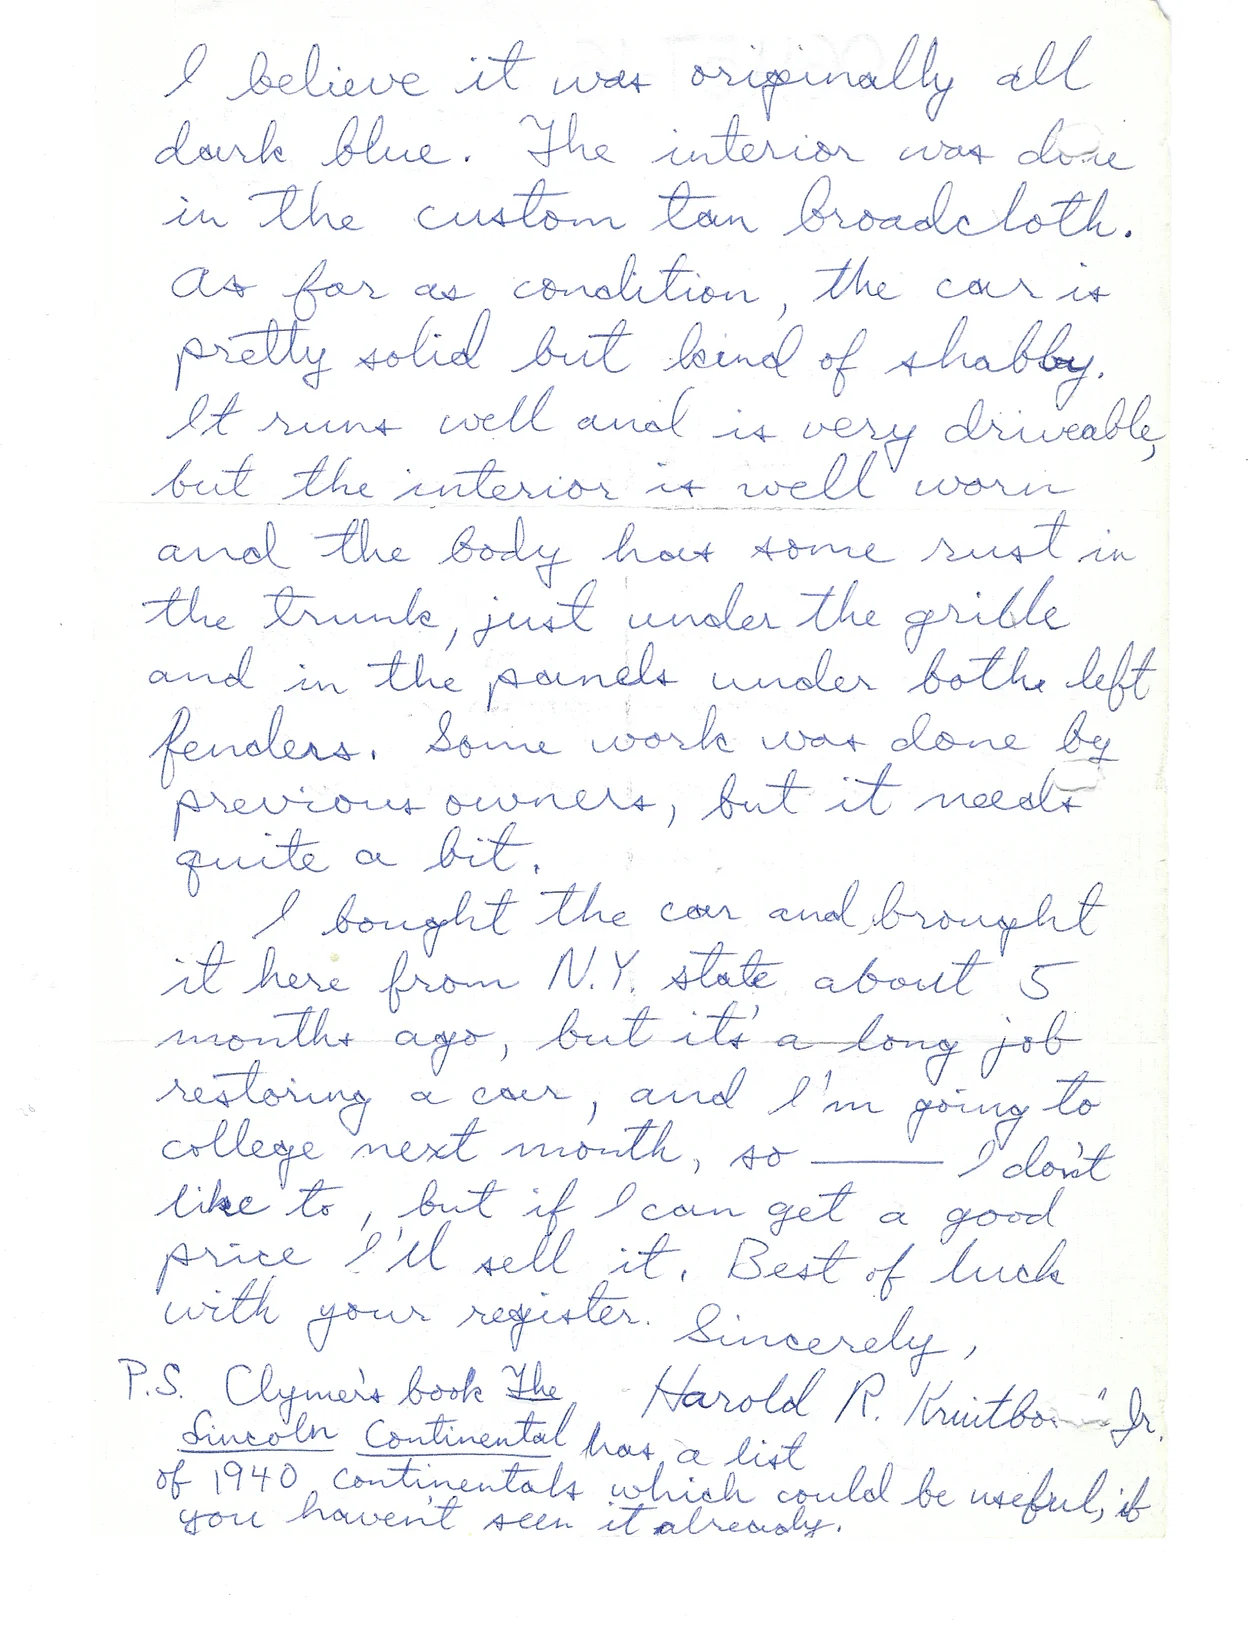 I believe it was originally all
dark blue. The interior was done
in the custom tan broadcloth.
As for as condition, the car is
pretty solid but kind of shabby.
It runs well and is very driveable,
but the interior is well worn
and the body has some rust in
the trunk, just under the grille
and in the panels under both left
fenders. Some work was done by
previous owners, but it needs
quite a bit.
I bought the car and brought
it here from N.Y. state about 5
months ago, but it's a long job
restoring a car, and I'm going to
college next month, so —— I don't
like to, but if I can get a good
price I'll sell it. Best of luck
with your register. Sincerely,
Harold R. Jr.
P.S. Clymer's book The
Lincoln Continental has a list
of 1940 continentals which could be useful, if
you haven't seen it already.